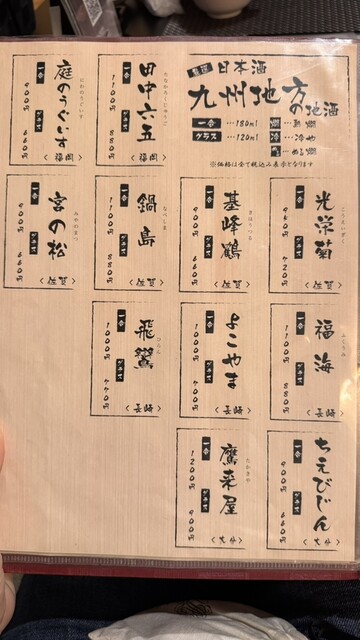 日本酒
九州地方の地酒
一合…180ml
グラス…120ml
熱燗
冷 冷や
ぬる燗
※価格は全て税込み表示となります
たなかろくじゅうご
田中六五
一合
グラス
〈福岡〉
にわのうぐいす
庭のうぐいす
一合 900円
グラス 660円
〈福岡〉
こうえいぎく
光栄菊
一合
グラス
〈佐賀〉
きほうつる
基峰鶴
一合 900円
グラス 660円
〈佐賀〉
なべしま
鍋島
一合
グラス
〈佐賀〉
みやのまつ
宮の松
一合 900円
グラス 660円
〈佐賀〉
ふくうみ
福海
一合
グラス
〈長崎〉
よこやま
一合
グラス
〈長崎〉
ひらん
飛鸞
一合 1000円
グラス 770円
〈長崎〉
ちえびじん
一合 900円
グラス 660円
〈大分〉
たかきや
鷹来屋
一合 1200円
グラス 900円
〈大分〉